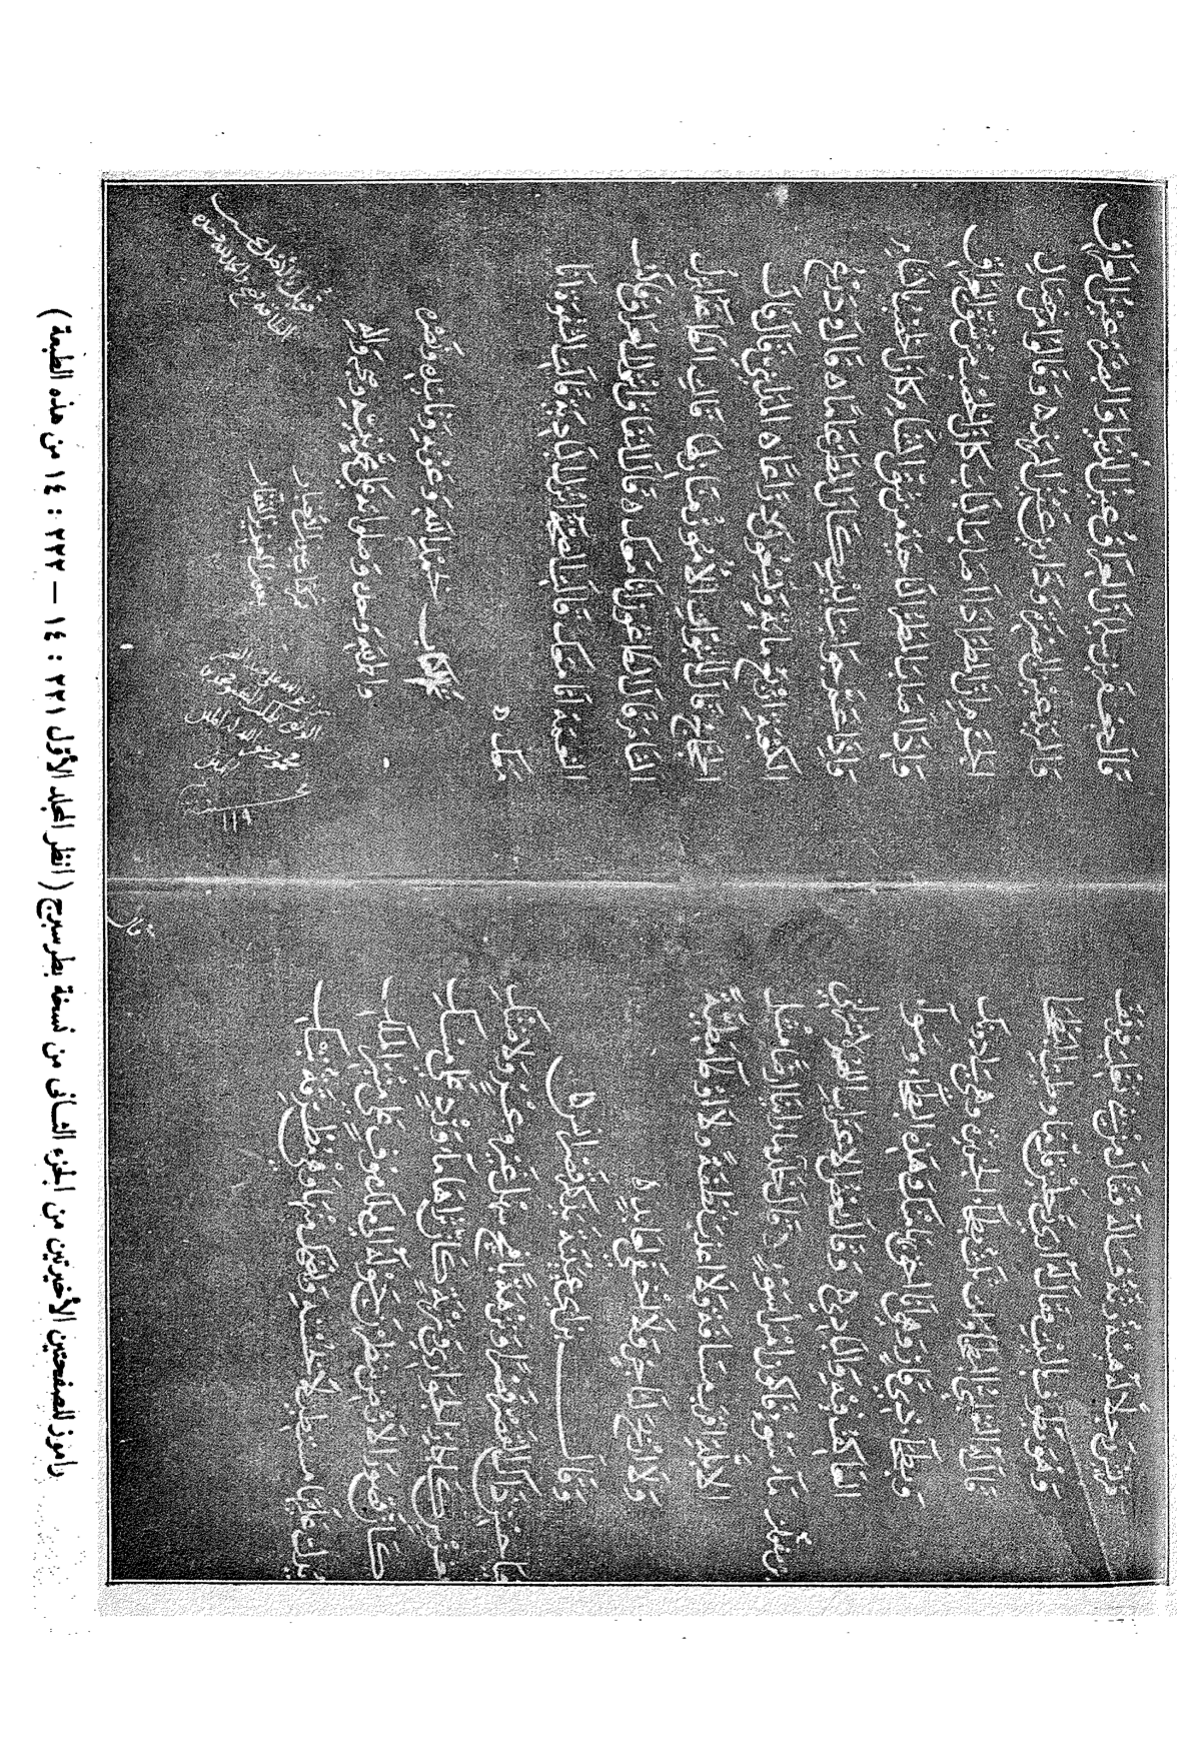 وهو يطوف بالبيت فقال له أرى رجلين قلما وطئتا البطحاء
قال له التغلبي البطحاوات ثلث بطحاء الجزيرة وهي لي دونك
وبطحاء ذي قار وهي أنا أحق بها منك وهذه البطحاء وسواء
العاكف فيه والبادي ه وقال بعض الأعراب اللهم لا تنزلني
ماء سوء فأكون امرأ سوء قال خالد ما رأينا أرضا مثل
الأبلة أقرب مسافة ولا أعذب نطفة ولا أوطأ مطية
ولا أربح لتاجر ولا أخفى لعابد ه
وقال ابن أبي عيينة يذكر قصر أنس ه
فيا حسن ذاك القصر قصرا ونزهة بأفيح سهل غير وعر ولا ضنك
بغرس كأبكار الجواري وتربة كأن ثراها ماء ورد على مسك
كأن قصور الأرض ينظرن حوله إلى ملك موف على منبر الملك
يدل عليها مستطيلا بحسنه ويضحك منها وهي مطرقة تبكي
قال
قال جعفر بن سليمن العراق عين الدنيا والبصرة عين العراق
والمربد عين البصرة وداري عين المربد ه وقالوا من خصال
الحرم من أن المطر إذا أصاب الباب كان الخصب من شق العراق
وإذا أصاب المطر الناحية من شق الشام كان الخصب بالشام
وإذا عم جوانب البيت كان المطر عاما ه قال وذرع
الكعبة أربع مائة وتسعون ذراعا ه المدائني قال قال
الحجاج قال لما تبوأت الأمور منازلها قالت الطاعة أنزل
الشام قال الطاعون أنا معك ه قال النفاق أنزل العراق قالت
النعمة أنا معك قالت الصحة أنزل البادية قالت الشقوة أنا
معك ه
تم الكتاب بحمد الله وعونه وتأييده ونصره
والحمد لله وحده وصلواته على محمد نبيه وعلى آله
راموز للصفحتين الأخيرتين من الجزء الثانى من نسخة بطرسبرج (انظر المجلد الأول ٢٢١ : ١٤ — ٢٢٢ : ١٤ من هذه الطبعة)